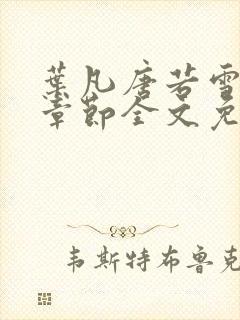 葉凡唐若雪
章節全文免
韦斯特布鲁克